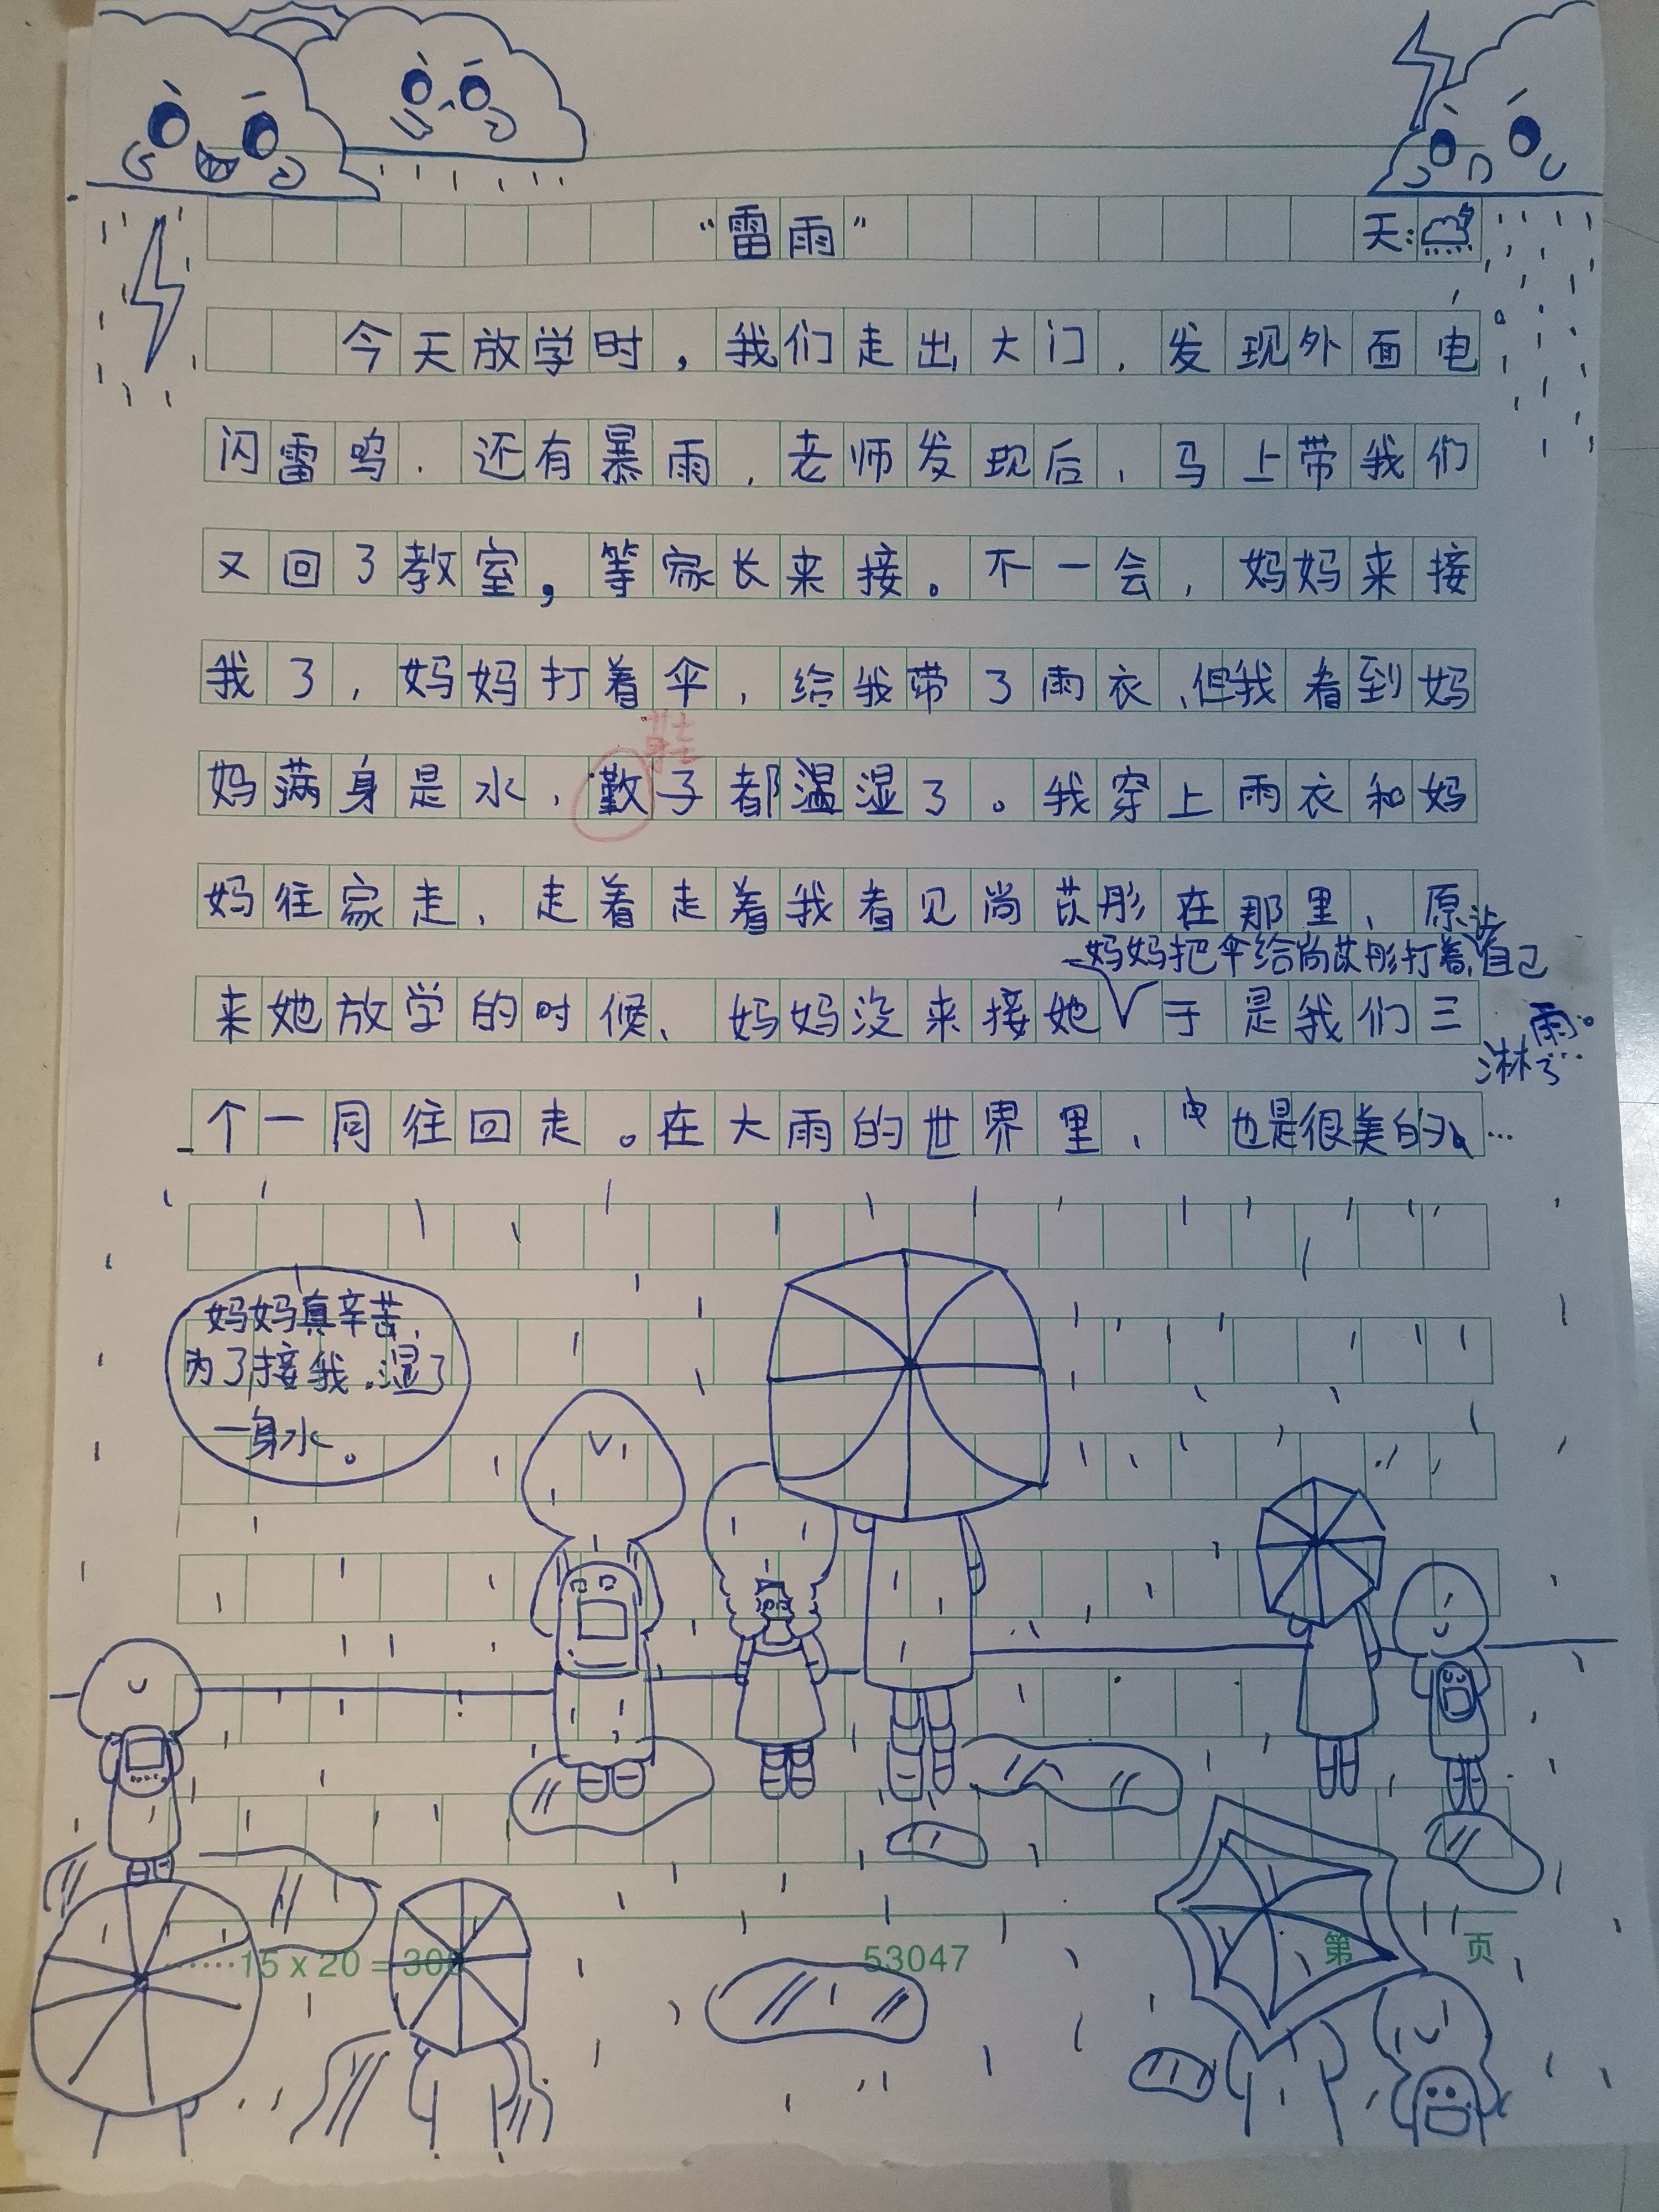 “雷雨” 天:
今天放学时，我们走出大门，发现外面电
闪雷鸣．还有暴雨，老师发现后，马上带我们
又回了教室，等家长来接。不一会，妈妈来接
我了，妈妈打着伞，给我带了雨衣，但我看到妈
妈满身是水，子都温湿了。我穿上雨衣和妈
妈往家走、走着走着我看见尚苡彤在那里、原
妈妈把伞给尚苡彤打着，自己
来她放学的时候、妈妈没来接她于是我们三
淋了雨。
个一同往回走。在大雨的世界里，也是很美的…
妈妈真辛苦，
为了接我，湿了
一身水。
15 x 20 = 300 53047 第 页